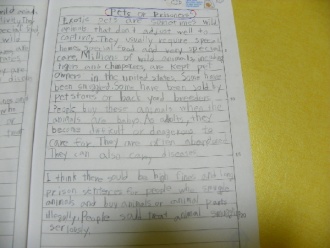 Pets or
Exotic pets are sometimes wild
animals that don't adjust well to
captivity. They usually require spec
homes, special food and very special
care. Millions of wild animals including
tigers and chimpanzees, are kept pets
in the united states. Some have
been smuggled. Some have been sold by
pet stores or back yard breeders.
People buy these animals when the
animals are babies. As adults, they
become difficult or dangerous to
care for. They are often abandoned.
They can also carry diseases.
I think there should be high fines and long
prison sentences for people who smuggle
animals and buy animals or animal parts
illegally. People should treat animal
seriously.